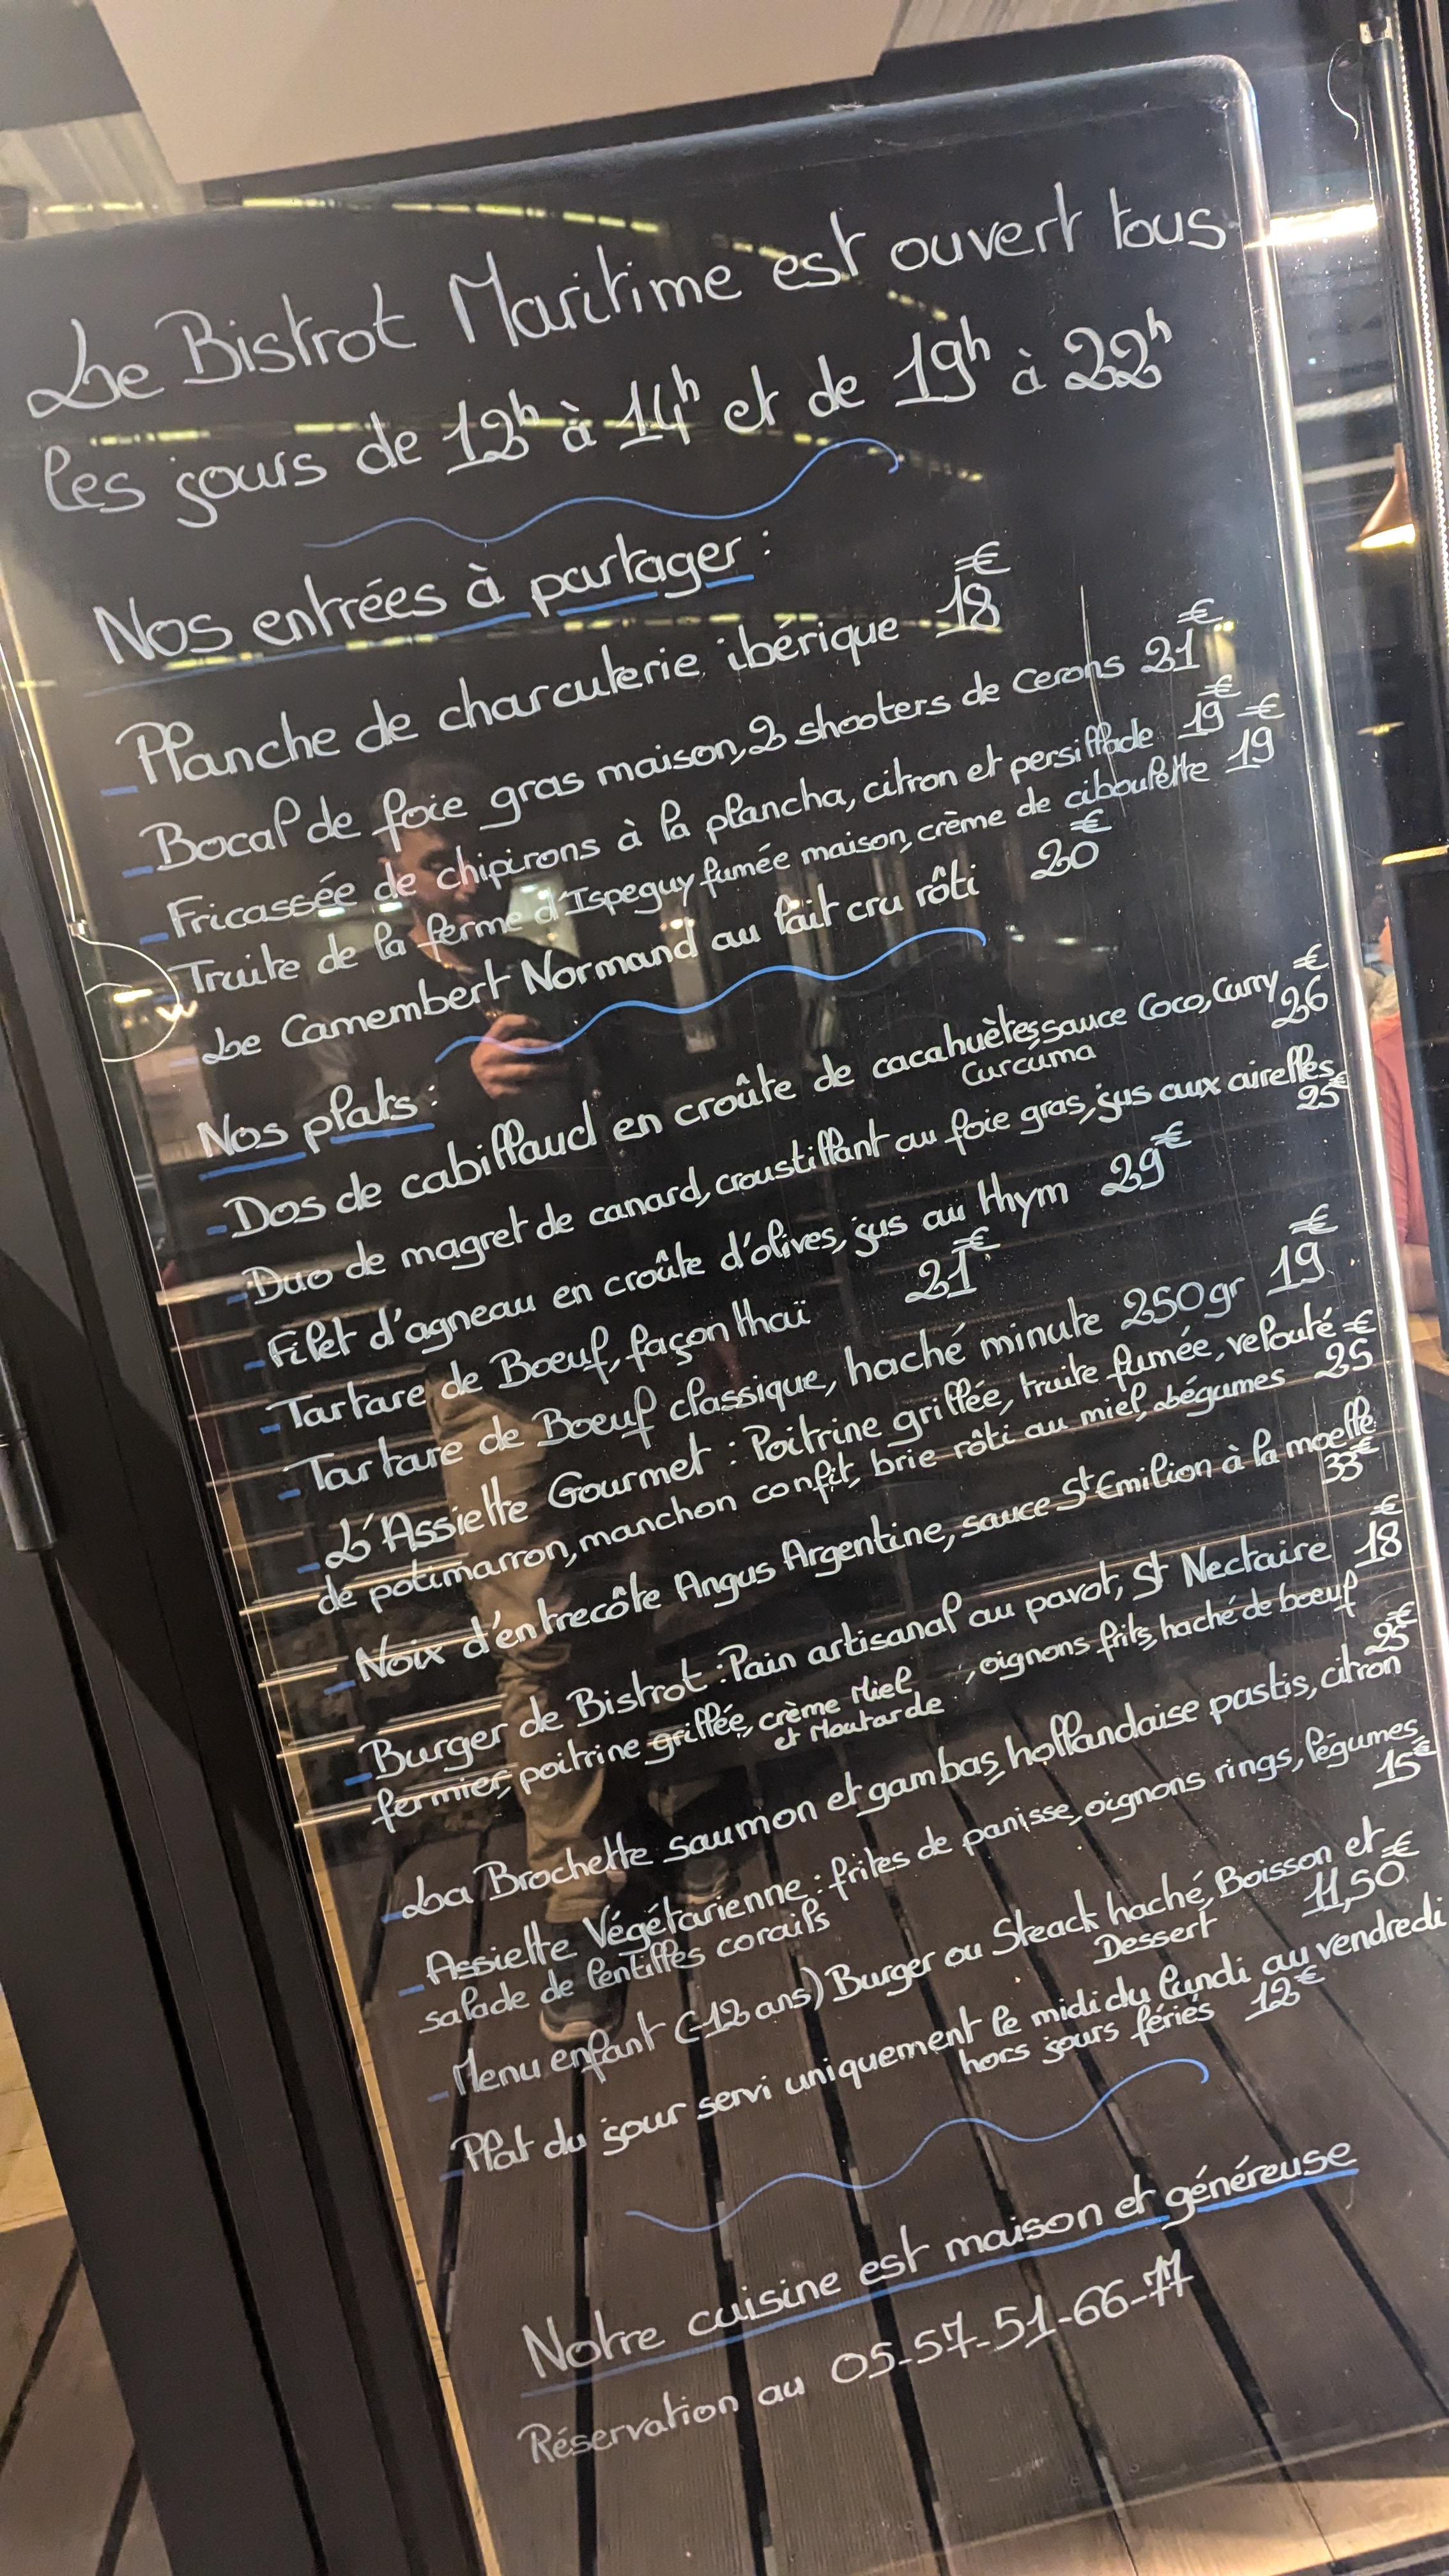 Le Bistrot Maritime est ouvert tous
les jours de 12h à 14h et de 19h à 22h
Nos entrées à partager :
- Planche de charcuterie ibérique 18€
- Bocal de foie gras maison, 2 shooters de Cerons 21€
- Fricassée de chipirons à la plancha, citron et persillade 19€
- Truite de la ferme d'Ispeguy fumée maison, crème de ciboulette 19€
- Le Camembert Normand au lait cru rôti 20€
Nos plats :
- Dos de cabillaud en croûte de cacahuètes, sauce Coco, Curry 26€
Curcuma
- Duo de magret de canard, croustillant au foie gras, jus aux airelles 25€
- Filet d'agneau en croûte d'olives, jus au thym 29€
- Tartare de Boeuf, façon thaï 21€
- Tartare de Boeuf classique, haché minute 250gr 19€
- L'Assiette Gourmet : Poitrine grillée, truite fumée, velouté
de potimarron, manchon confit, brie rôti au miel, Légumes 25€
- Noix d'entrecôte Angus Argentine, sauce St Emilion à la moelle 33€
- Burger de Bistrot : Pain artisanal au pavot, St Nectaire 18€
fermier, poitrine grillée, crème Miel et Moutarde, oignons frits, haché de boeuf
- La Brochette saumon et gambas, hollandaise pastis, citron 25€
- Assiette Végétarienne : frites de panisse, oignons rings, légumes, 15€
salade de lentilles corails
- Menu enfant (-12 ans) Burger ou Steack haché, Boisson et 11,50€
Dessert
- Plat du jour servi uniquement le midi du lundi au vendredi
hors jours fériés 12€
Notre cuisine est maison et généreuse
Réservation au 05-57-51-66-77